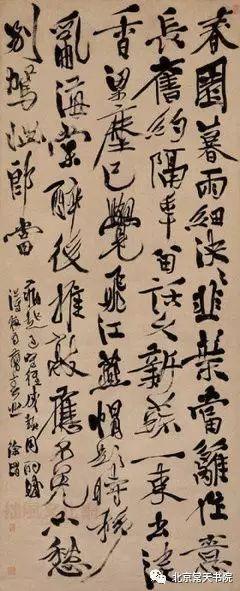 春園暮雨細泱泱韭葉當籬作意
長舊約隔年留話久新蔬一束出泥
香梁塵已覺飛江燕帽影時移
亂海棠醉後推敲應不免只愁
別駕惱郎當
徐渭
北京常天书院